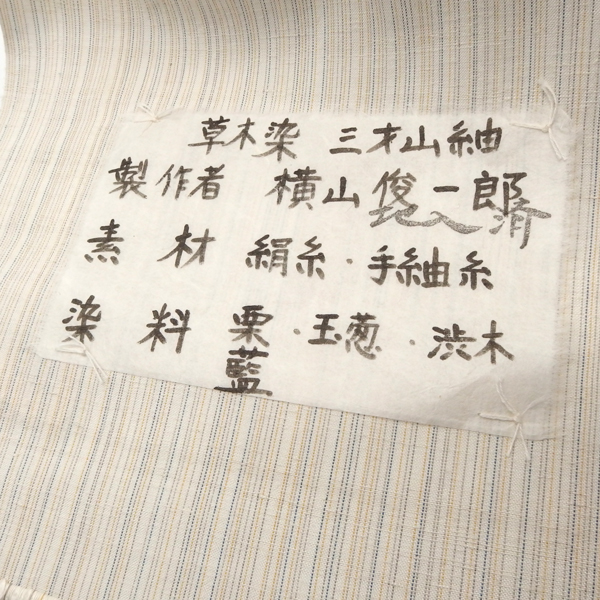 草木染 三才山紬
製作者 横山俊一郎
素材 絹糸・手紬糸
染料 栗・玉葱・渋木
藍